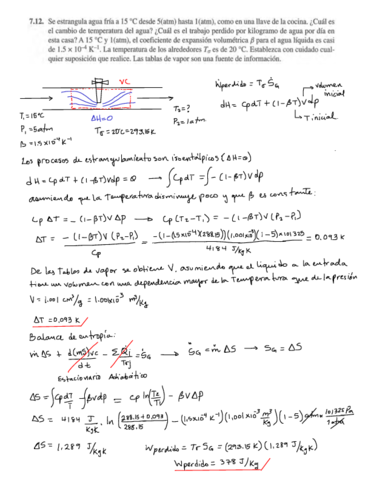 7.12. Se estrangula agua fría a 15 °C desde 5(atm) hasta 1(atm), como en una llave de la cocina. ¿Cuál es
el cambio de temperatura del agua? ¿Cuál es el trabajo perdido por kilogramo de agua por día en
esta casa? A 15 °C y 1(atm), el coeficiente de expansión volumétrica β para el agua líquida es casi
de 1.5 × 10⁻⁴ K⁻¹. La temperatura de los alrededores Tσ es de 20 °C. Establezca con cuidado cual-
quier suposición que realice. Las tablas de vapor son una fuente de información.
VC
Ẇperdido = Tσ ṠG
volumen inicial
dH = CpdT + (1-βT)Vdp
T inicial
T₁=15°C
P₁=5atm
β=1.5x10⁻⁴ K⁻¹
ΔH=0
Tσ=20°C=293.15K
T₂=?
P₂=1atm
Los procesos de estrangulamiento son isoentálpicos (ΔH=0)
dH = CpdT + (1-βT)Vdp = 0 → ∫CpdT = ∫-(1-βT)Vdp
asumiendo que la Temperatura disminuye poco y que β es constante:
Cp ΔT = -(1-βT)VΔP → Cp(T₂-T₁) = -(1-βT)V(P₂-P₁)
ΔT = -(1-βT)V(P₂-P₁) / Cp = -(1-(1.5x10⁻⁴)(288.15))(1.001x10⁻³)(1-5)x101325 / 4184 J/kgK = 0.093 K
De las Tablas de vapor se obtiene V, asumiendo que el líquido a la entrada
tiene un volumen con una dependencia mayor de la Temperatura que de la presión
V = 1.001 cm³/g = 1.001x10⁻³ m³/kg
ΔT=0.093 K
Balance de entropía:
ṁ ΔS + d(mS)vc/dt - Σ Q̇j/Tσj = ṠG → ṠG = ṁ ΔS → SG = ΔS
Estacionario Adiabático
ΔS = ∫Cp dT/T - ∫βVdp = Cp ln(T₂/T₁) - βVΔP
ΔS = 4184 J/kgK . ln(288.15+0.093/288.15) - (1.5x10⁻⁴ K⁻¹)(1.001x10⁻³ m³/kg)(1-5)atm x 101325 Pa/1atm
ΔS = 1.289 J/kgK
Wperdido = Tσ SG = (293.15 K)(1.289 J/kgK)
Wperdido = 378 J/kg